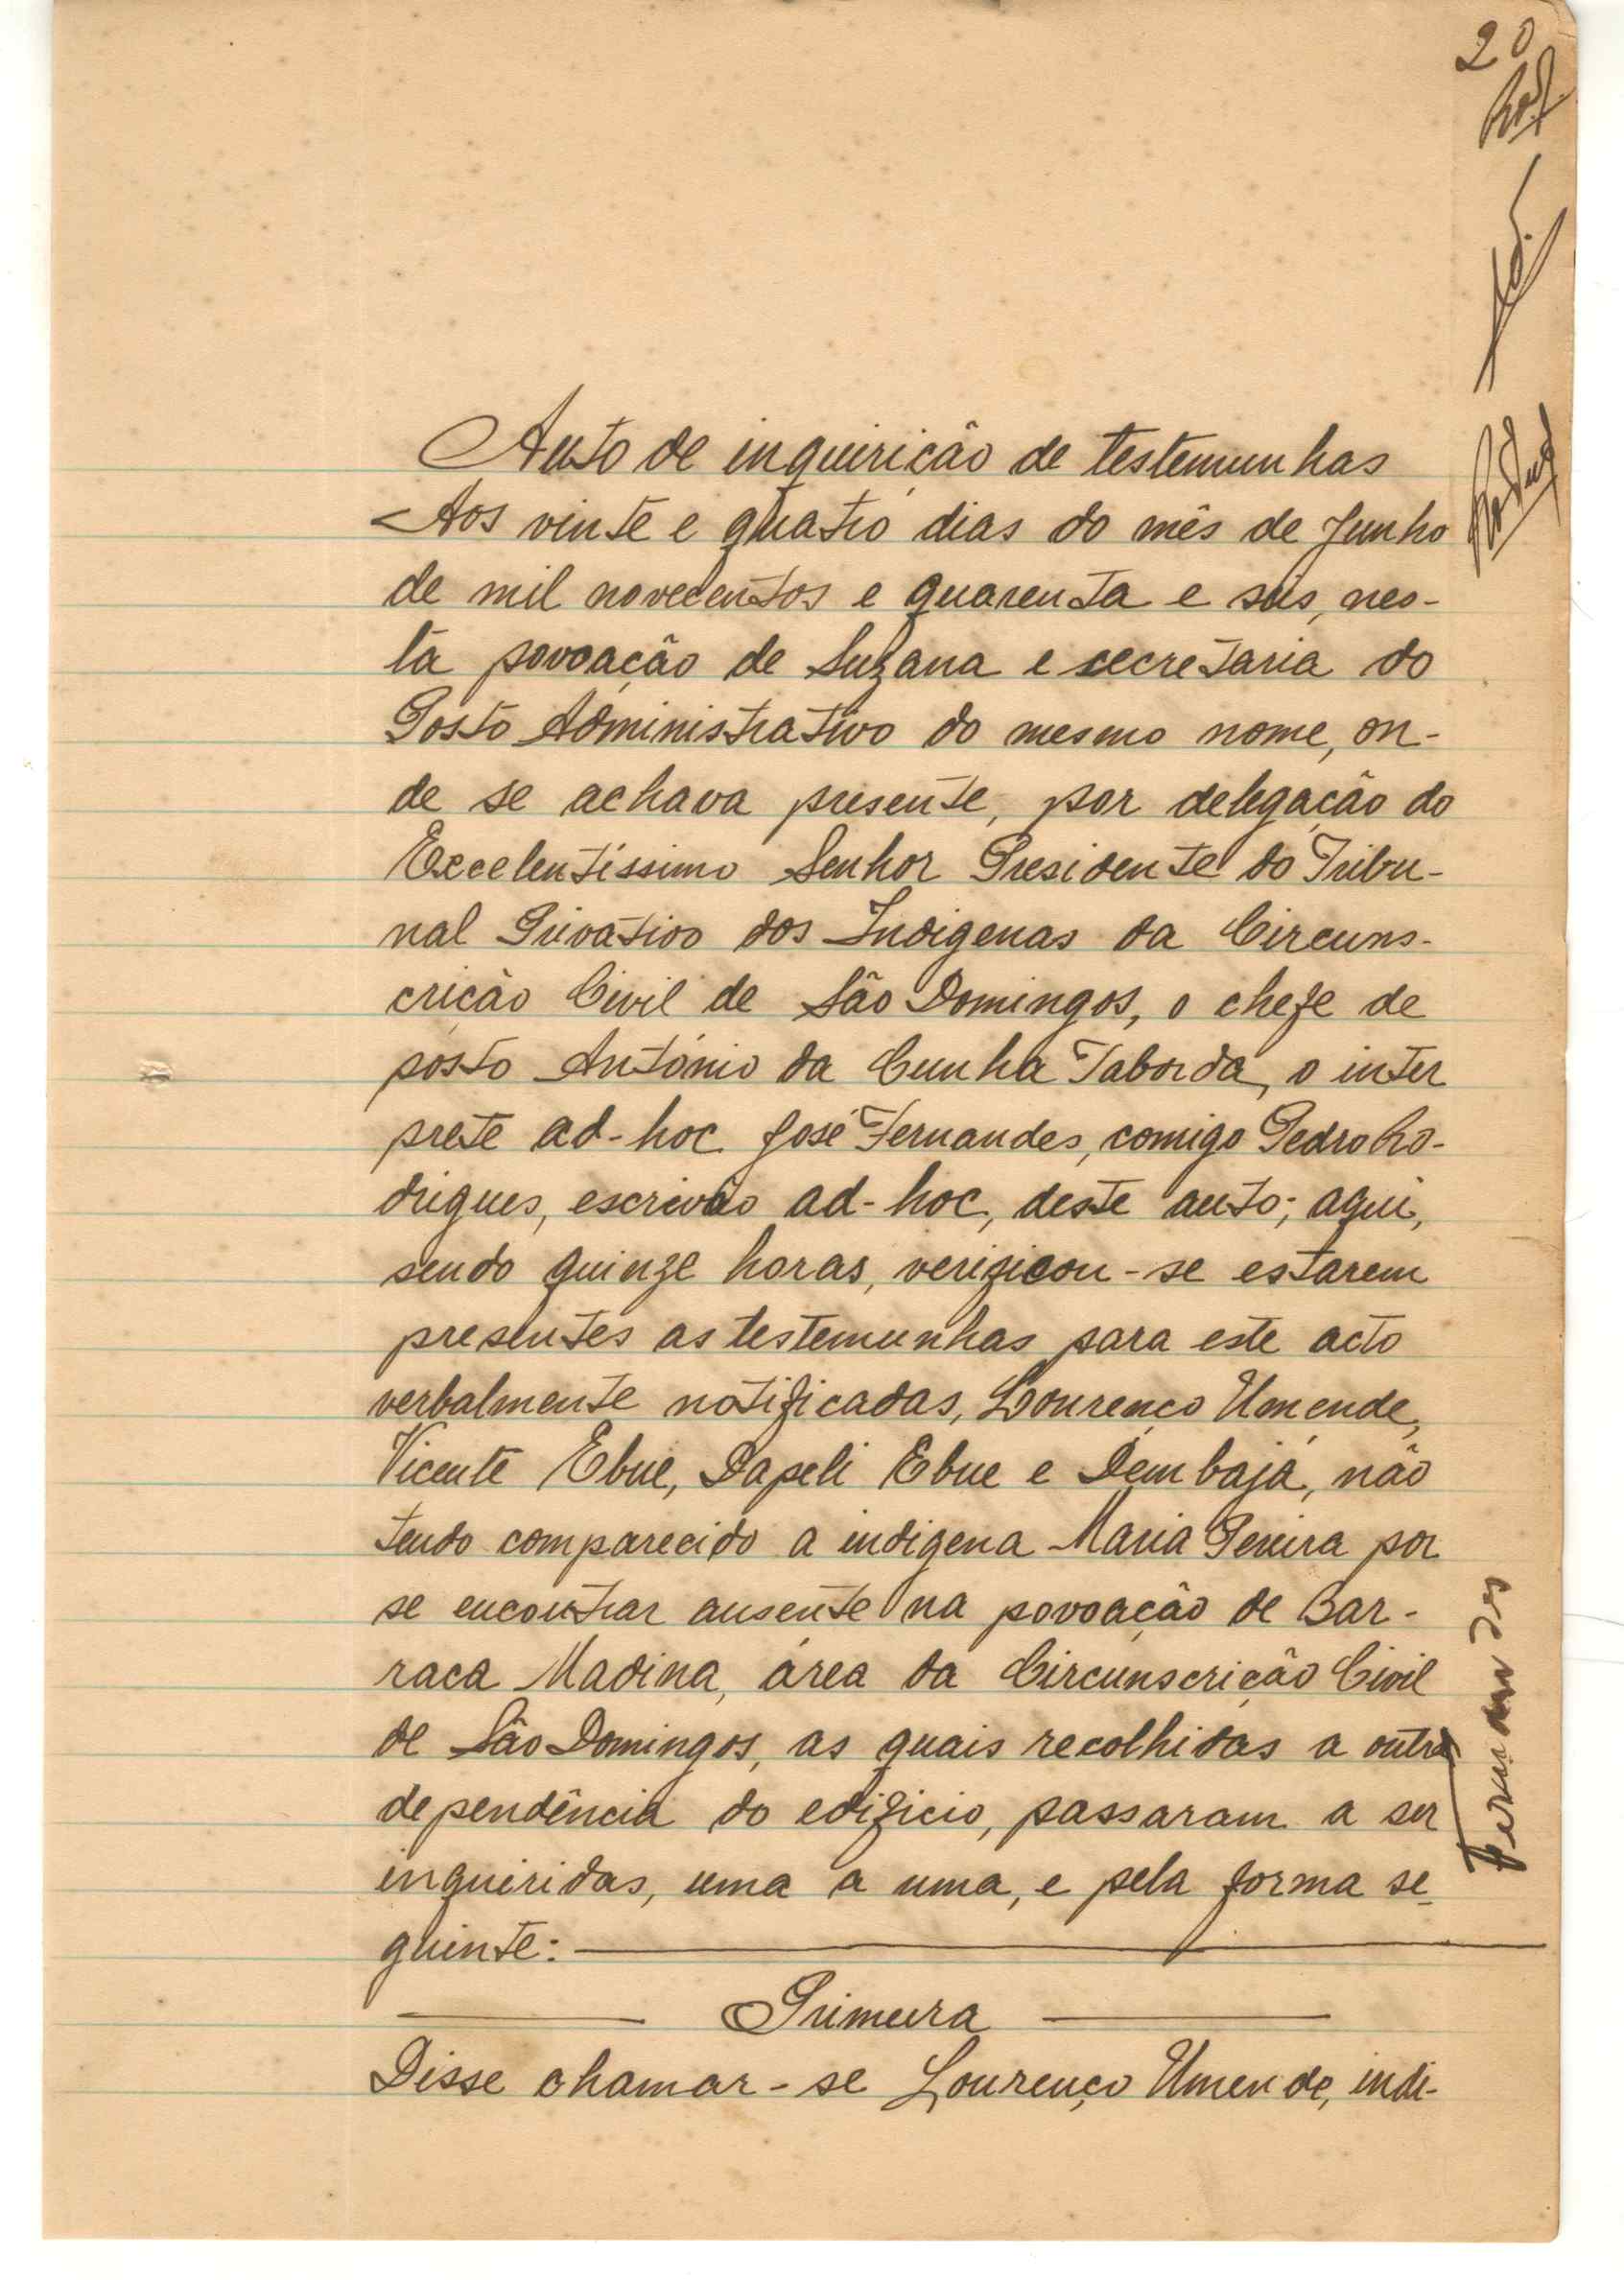 20
Rod.
Auto de inquirição de testemunhas
Aos vinte e quatro dias do mês de Junho
de mil novecentos e quarenta e seis, nes-
ta povoação de Suzana e secretaria do
Posto Administrativo do mesmo nome, on-
de se achava presente, por delegação do
Excelentíssimo Senhor Presidente do Tribu-
nal Privativo dos Indigenas da Circuns-
crição Civil de São Domingos, o chefe de
posto António da Cunha Taborda, o inter
prete ad-hoc José Fernandes, comigo Pedro Ro-
drigues, escrivão ad-hoc, deste auto; aqui,
sendo quinze horas, verificou-se estarem
presentes as testemunhas para este acto
verbalmente notificadas, Lourenço Umende,
Vicente Ebue, Dapeli Ebue e Dembajá, não
tendo comparecido a indigena Maria Pereira por
se encontrar ausente na povoação de Bar-
raca Madina, área da Circunscrição Civil
de São Domingos, as quais recolhidas a outra
dependência do edificio, passaram a ser
inquiridas, uma a uma, e pela forma se-
guinte:
Primeira
Disse chamar-se Lourenço Umende, indi-
Fernandes